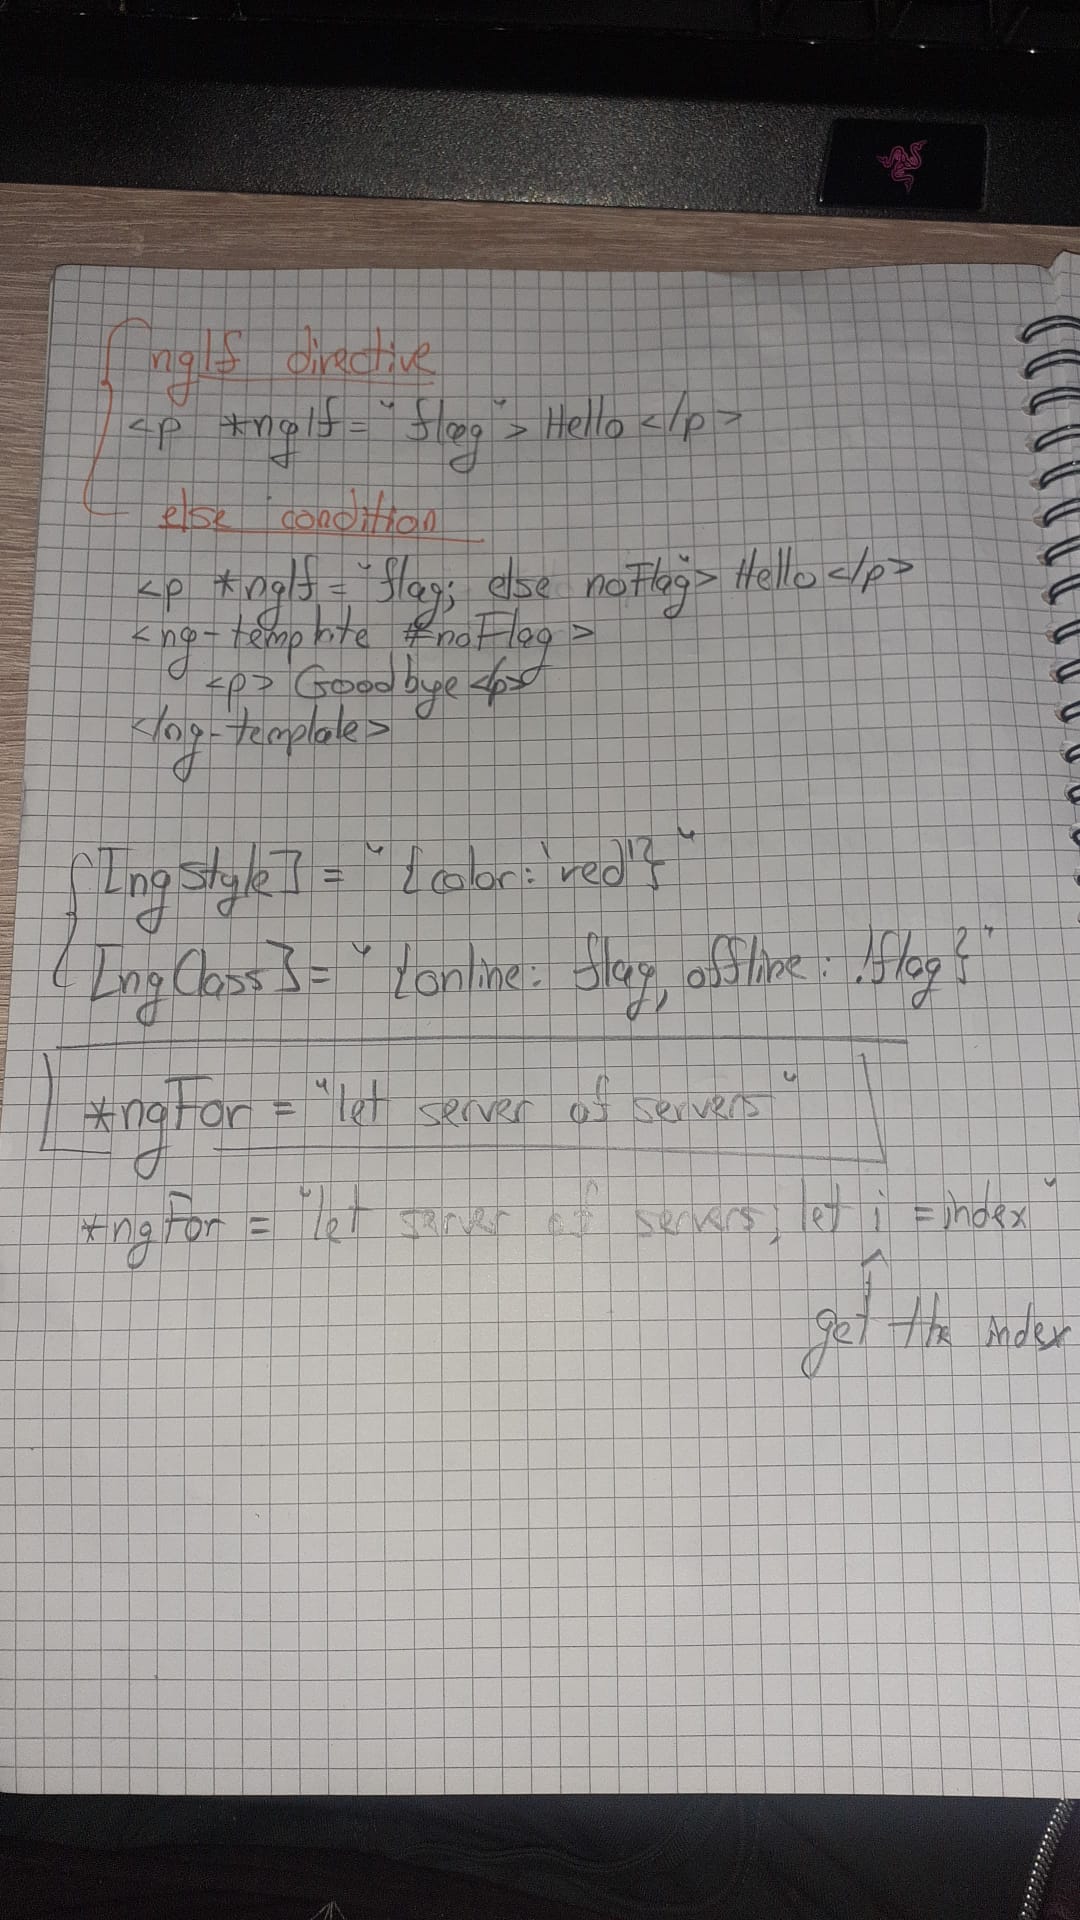 ngIf directive
<p *ngIf = "flag"> Hello </p>
else condition
<p *ngIf = "flag; else noFlag"> Hello </p>
<ng-template #noFlag>
<p> Goodbye <p>
</ng-template>
[ngStyle] = "{color: 'red'}"
[ngClass] = "{online: flag, offline: !flag}"
*ngFor = "let server of servers"
*ngFor = "let server of servers; let i = index"
get the index